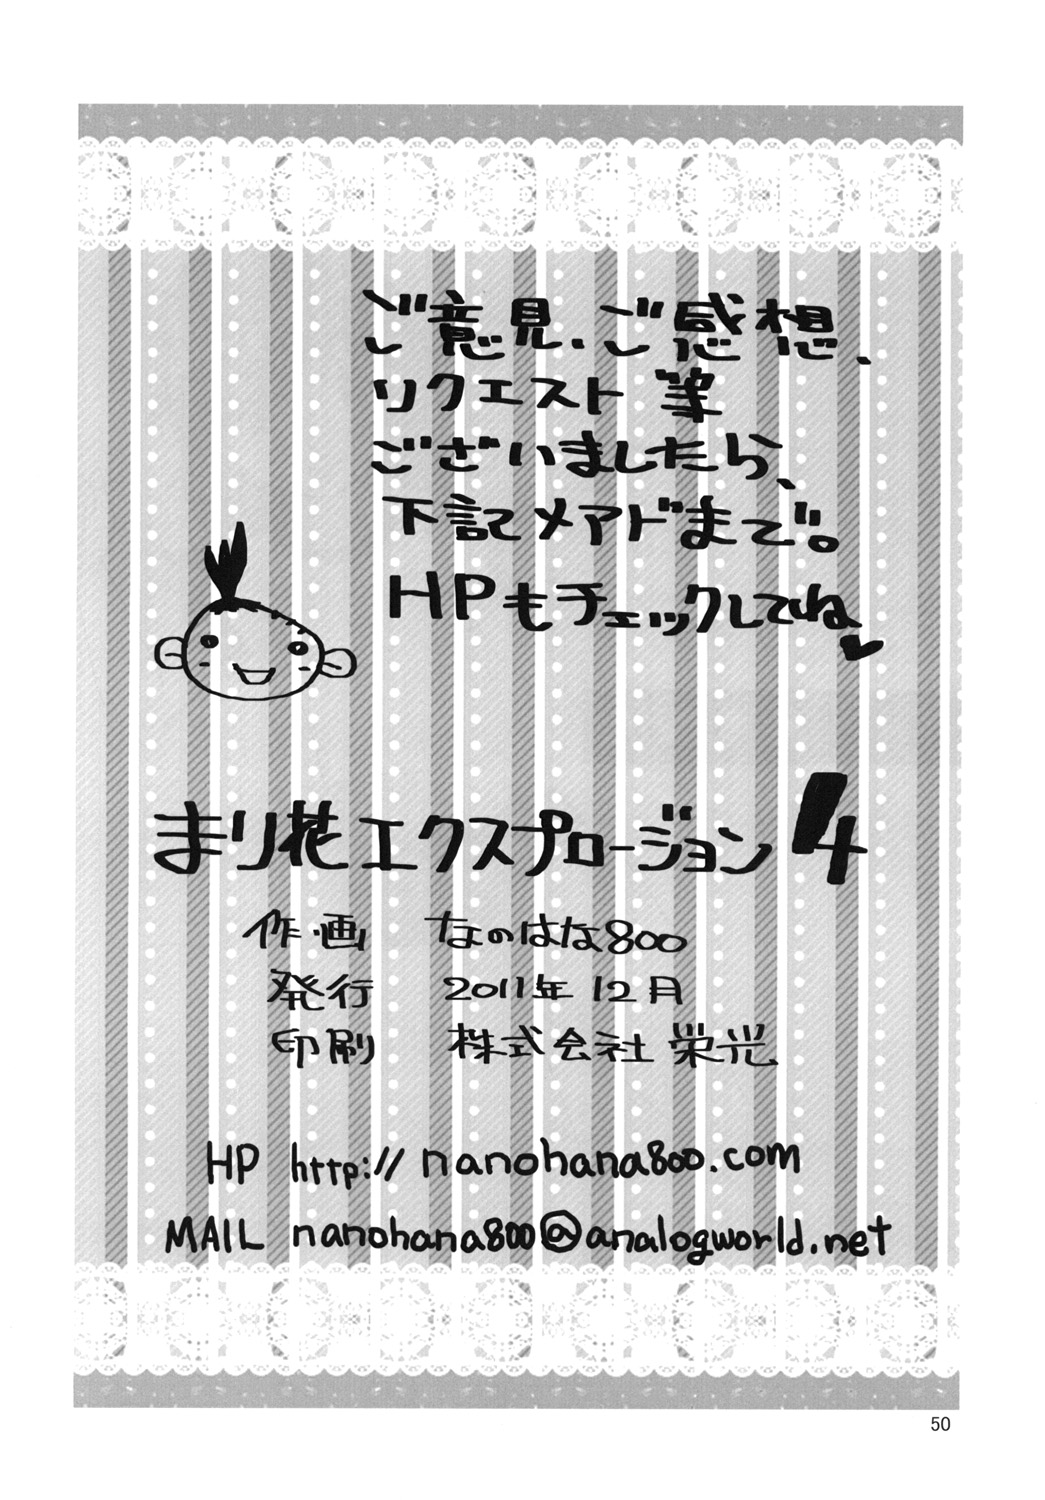 ご意見、ご感想、
リクエスト等
ございましたら、
下記メアドまで。
HPもチェックしてね
まり花エクスプロージョン4
作・画 なのはな800
発行 2011年12月
印刷 株式会社 栄光
HP http://nanohana800.com
MAIL nanohana800@analogworld.net
50